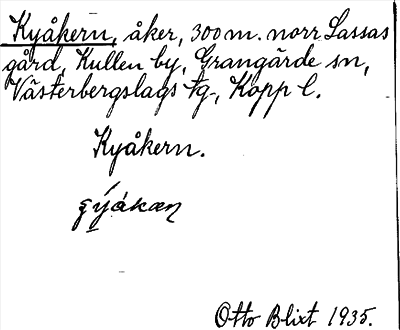 Kyåkern, åker, 300 m. norr Lassas
gård, Kullen by, Grangärde sn,
Västerbergslags tg., Kopp l.
Kyåkern.
Otto Blixt 1935.